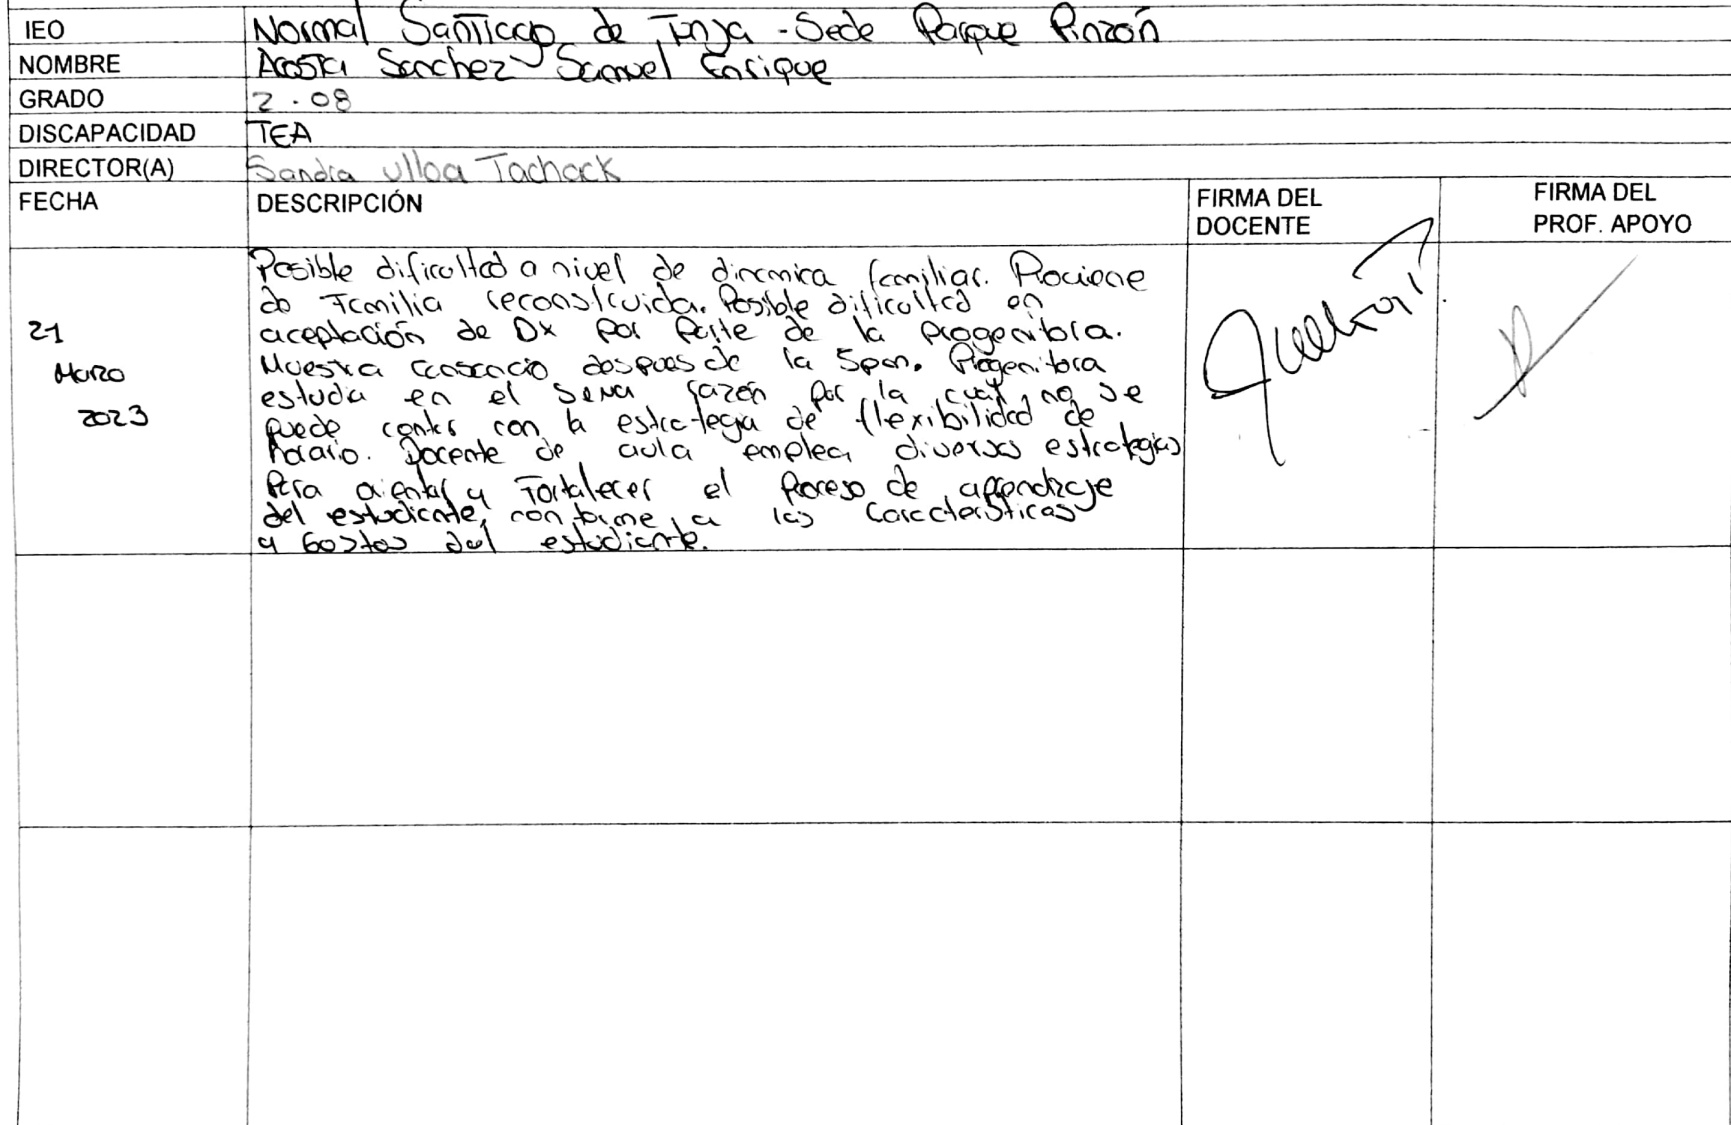 IEO Normal Santiago de Tunja - Sede Parque Pinzón
NOMBRE Acosta Sanchez Samuel Enrique
GRADO 2.08
DISCAPACIDAD TEA
DIRECTOR(A) Sandra Ulloa Tachack
FECHA DESCRIPCIÓN FIRMA DEL DOCENTE FIRMA DEL PROF. APOYO
21 Marzo 2023
Posible dificultad a nivel de dinamica familiar. Proviene
de Familia reconstruida. Posible dificultad en
aceptación de Dx por parte de la progenitora.
Muestra cansancio despues de la 5pm. Progenitora
estudia en el Sena razón por la cual no se
puede contar con la estrategia de flexibilidad de
horario. Docente de aula emplea diversas estrategias
Para orientar y Fortalecer el Proceso de aprendizaje
del estudiante, conforme a las características
y Gostos del estudiante.